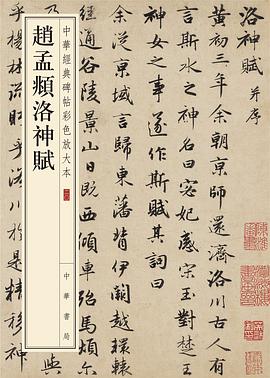 洛神賦 并序
黃初三年余朝京師還濟洛川古人有
言斯水之神名曰宓妃感宋玉對楚王
神女之事遂作斯賦其詞曰
余從京域言歸東藩背伊闕越轘轅
經通谷陵景山日既西傾車殆馬煩尔
中華經典碑帖彩色放大本
中華書局
趙孟頫洛神賦
與
乎楊林流乎洛川於是精移神